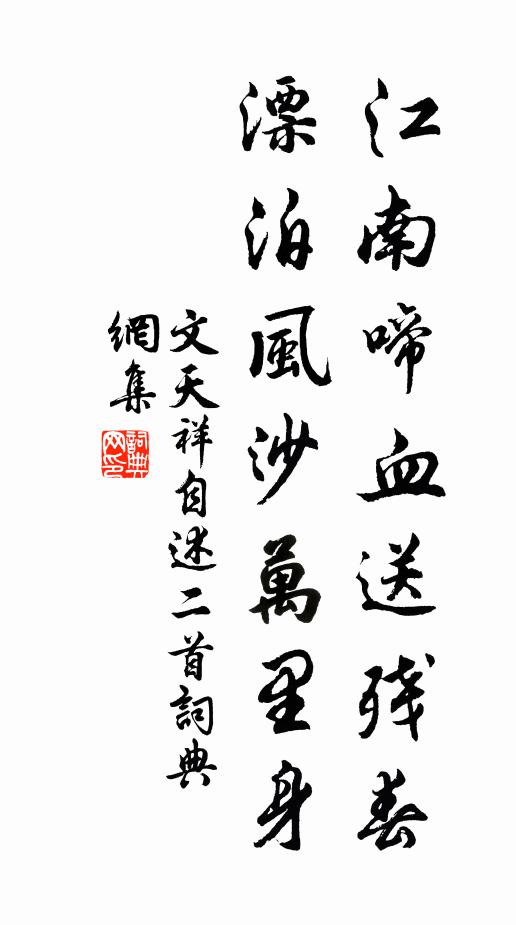 江南啼血送残春
漂泊風沙萬里身
文天祥自述二首詞典
網集
詞典网印